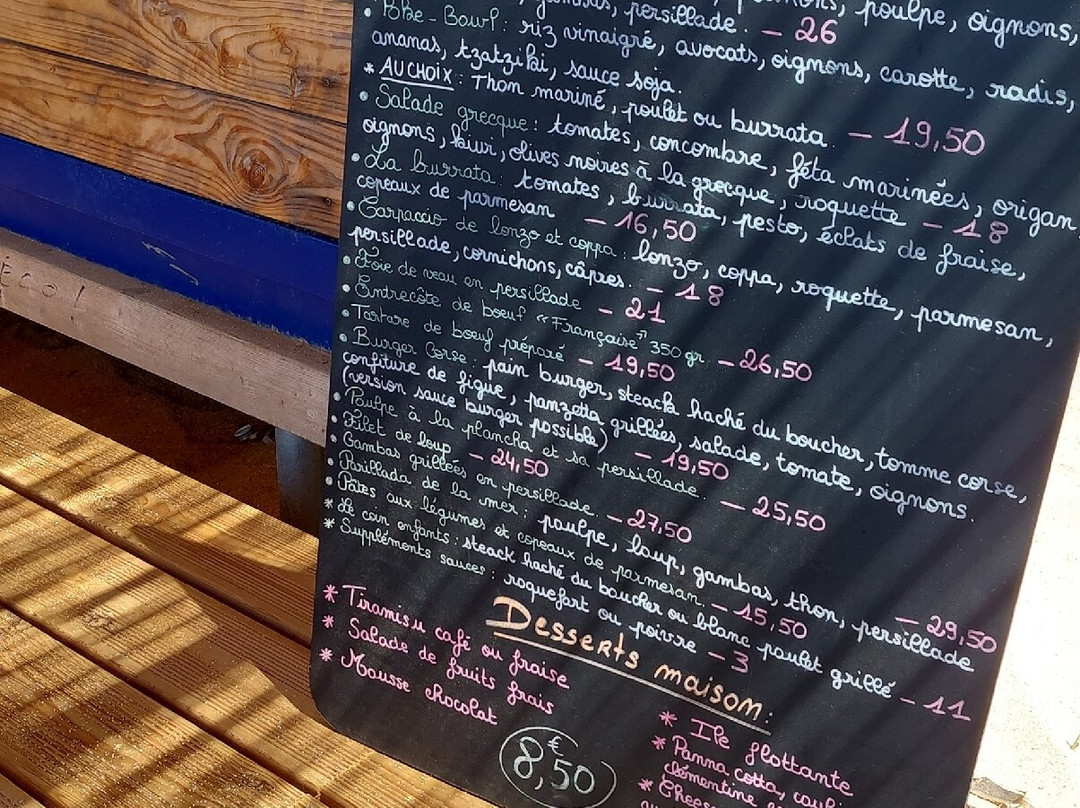 persillade. - 26 poulpe, oignons,
• Poke-Bowl: riz vinaigré, avocats, oignons, carotte, radis,
ananas, tzatziki, sauce soja.
* AU CHOIX: Thon mariné, poulet ou burrata. - 19,50
• Salade grecque: tomates, concombre, féta marinées, origan,
oignons, kiwi, olives noires à la grecque, roquette - 18
• La burrata: tomates, burrata, pesto, éclats de fraise,
copeaux de parmesan - 16,50
• Carpaccio de lonzo et coppa: lonzo, coppa, roquette, parmesan,
persillade, cornichons, câpres. - 18
• Foie de veau en persillade - 21
• Entrecôte de boeuf "Française" 350 gr - 26,50
• Tartare de boeuf préparé - 19,50
• Burger Corse: pain burger, steack haché du boucher, tomme corse,
confiture de figue, panzetta grillées, salade, tomate, oignons.
(version sauce burger possible) - 19,50
• Poulpe à la plancha et sa persillade. - 25,50
• Filet de loup - 24,50
• Gambas grillées en persillade. - 27,50
• Parillada de la mer: poulpe, loup, gambas, thon, persillade - 29,50
• Pâtes aux légumes et copeaux de parmesan. - 15,50
* Le coin enfants: steack haché du boucher ou blanc poulet grillé - 11
* Suppléments sauces: roquefort ou poivre - 3
Desserts maison:
* Tiramisu café ou fraise
* Salade de fruits frais
* Mousse chocolat
8,50 €
* Ile flottante
* Panna cotta,
clémentine